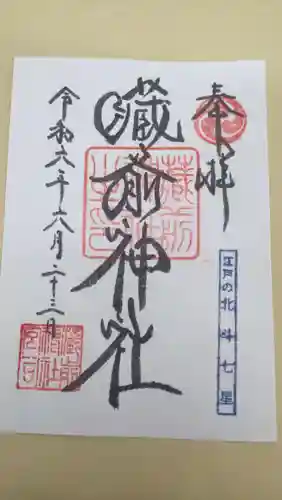 奉拝
江戸の北斗七星
藏前神社
令和六年六月二十三日